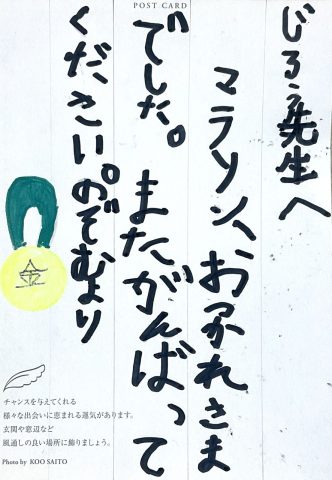 POST CARD
じろう先生へ
マラソン、おつかれさま
でした。またがんばって
ください。のぞむより
金
チャンスを与えてくれる
様々な出会いに恵まれる運気があります。
玄関や窓辺など
風通しの良い場所に飾りましょう。
Photo by KOO SAITO